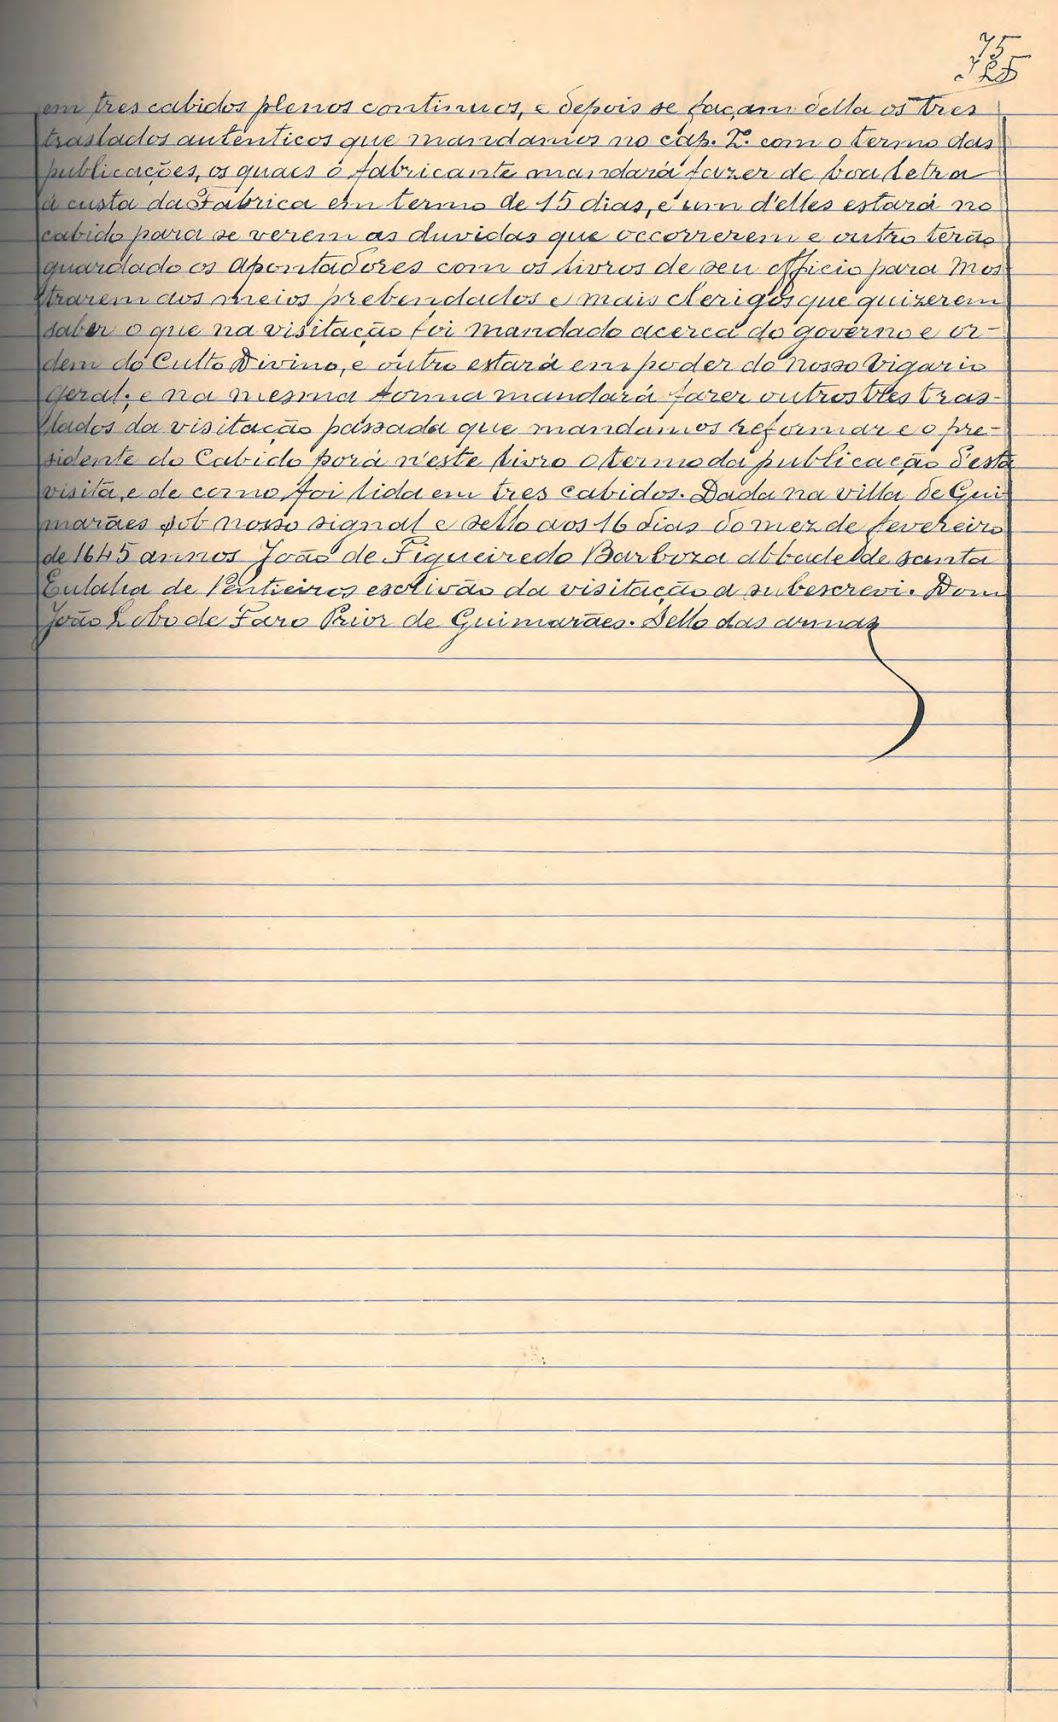 75
em tres cabidos plenos continuos, e depois se façam della os tres
traslados autenticos que mandamos no cap. 2.º com o termo das
publicações, os quais o fabricante mandará fazer de boa letra
á custa da Fabrica em termo de 15 dias, e um d'elles estará no
cabido para se verem as duvidas que occorrerem e outro terão
guardado os apontadores com os livros de seu officio para mos-
trarem aos meios prebendados e mais clerigos que quizerem
saber o que na visitação foi mandado acerca do governo e or-
dem do Culto Divino, e outro estará em poder do nosso Vigario
Geral; e na mesma forma mandará fazer outros tres tras-
lados da visitação passada que mandamos reformar e o pre-
sidente do Cabido porá n'este livro o termo da publicação d'esta
visita, e de como foi lida em tres cabidos. Dada na villa de Gui
marães sob nosso signal e sello aos 16 dias do mez de fevereiro
de 1645 annos João de Figueiredo Barboza abbade de santa
Eulalia de Pentieiros escrivão da visitação a subescrevi. Dom
João Lobo de Faro Prior de Guimarães. Sello das armas